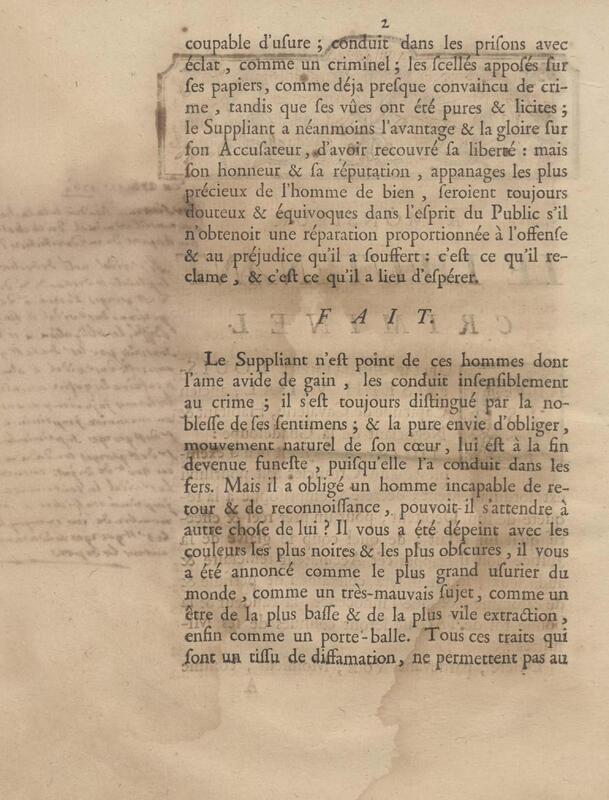 2
coupable d'uſure ; conduit dans les priſons avec
éclat, comme un criminel ; les ſcellés appoſés ſur
ſes papiers, comme déja preſque convaincu de cri-
me, tandis que ſes vûes ont été pures & licites ;
le Suppliant a néanmoins l'avantage & la gloire ſur
ſon Accuſateur, d'avoir recouvré ſa liberté : mais
ſon honneur & ſa réputation, appanages les plus
précieux de l'homme de bien, ſeroient toujours
douteux & équivoques dans l'eſprit du Public s'il
n'obtenoit une réparation proportionnée à l'offenſe
& au préjudice qu'il a ſouffert : c'eſt ce qu'il re-
clame, & c'eſt ce qu'il a lieu d'eſpérer.
FAIT.
Le Suppliant n'eſt point de ces hommes dont
l'ame avide de gain, les conduit inſenſiblement
au crime ; il s'eſt toujours diſtingué par la no-
bleſſe de ſes ſentimens ; & la pure envie d'obliger,
mouvement naturel de ſon cœur, lui eſt à la fin
devenue funeſte, puiſqu'elle l'a conduit dans les
fers. Mais il a obligé un homme incapable de re-
tour & de reconnoiſſance, pouvoit-il s'attendre à
autre choſe de lui ? Il vous a été dépeint avec les
couleurs les plus noires & les plus obſcures, il vous
a été annoncé comme le plus grand uſurier du
monde, comme un très-mauvais ſujet, comme un
être de la plus baſſe & de la plus vile extraction,
enfin comme un porte-balle. Tous ces traits qui
ſont un tiſſu de diffamation, ne permettent pas au